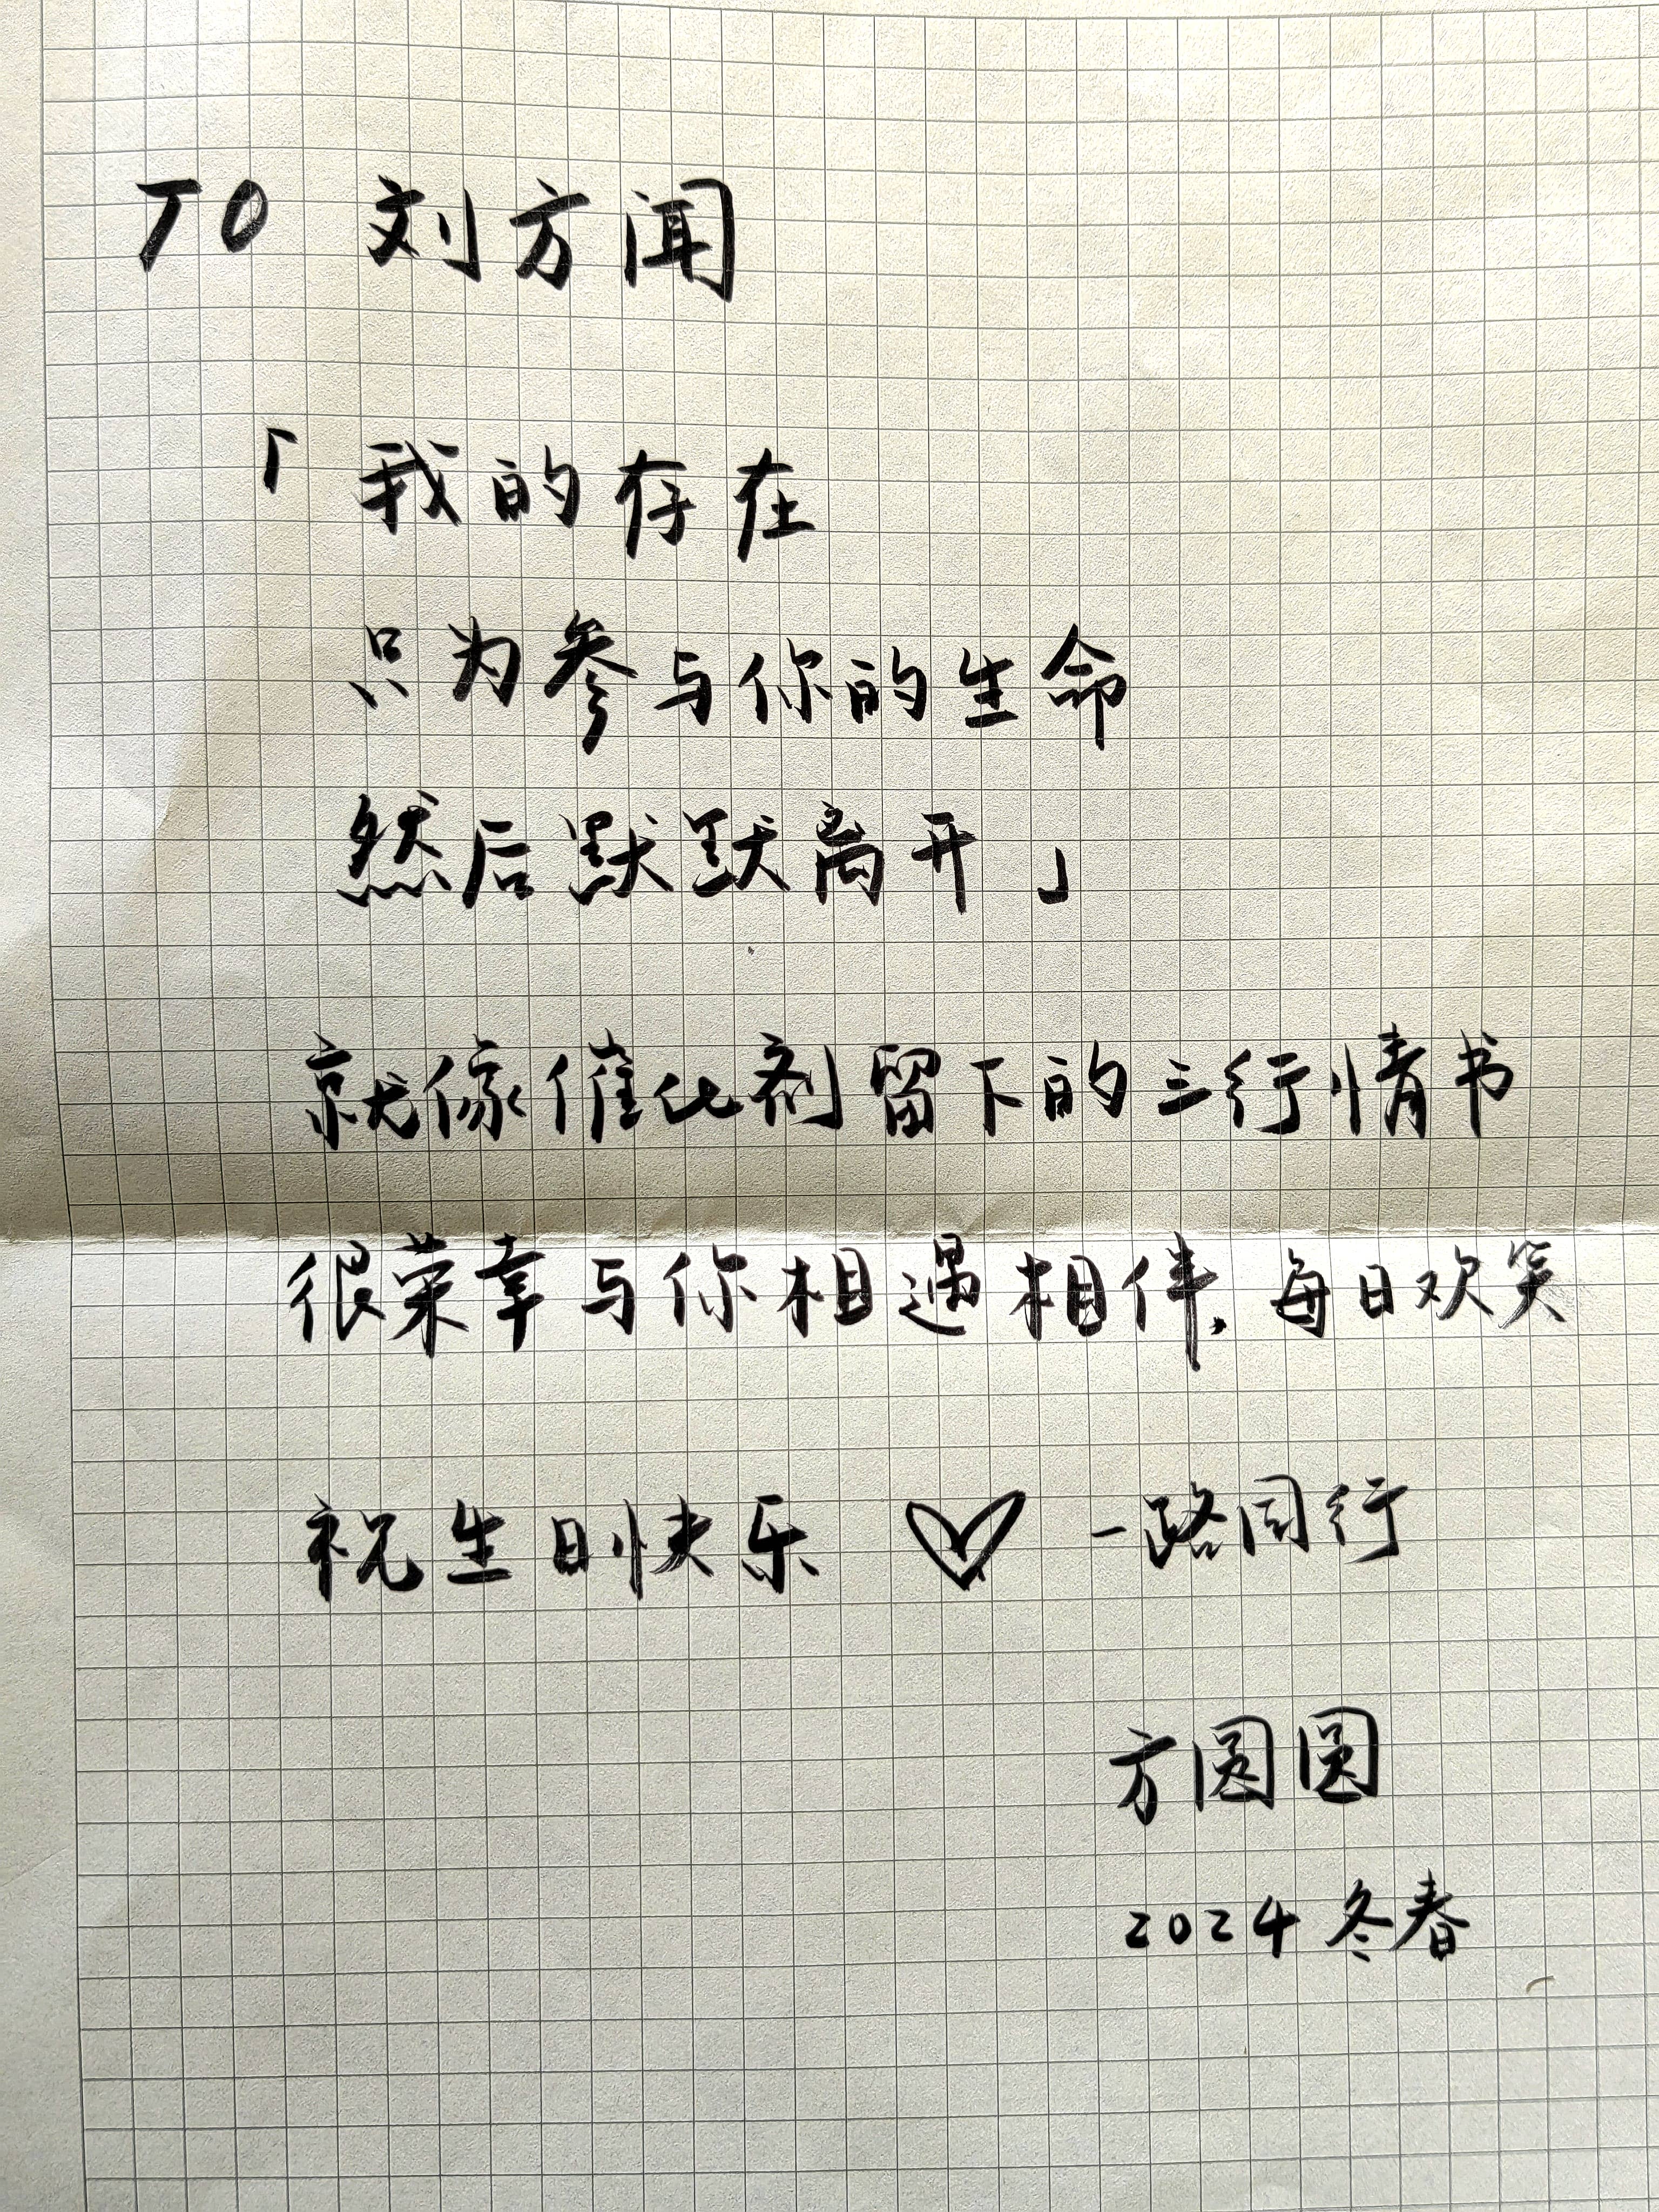 TO 刘方闻
「我的存在
只为参与你的生命
然后默默离开」
就像催化剂留下的三行情书
很荣幸与你相遇相伴.每日欢笑
祝生日快乐 ♡ 一路同行
方圆圆
2024 冬春